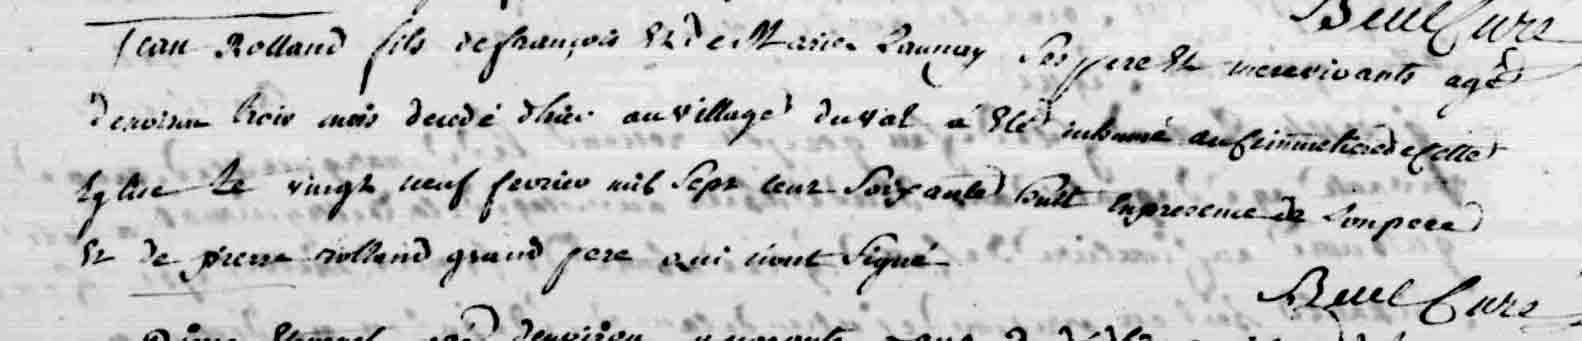 Beuel Curé
Jean Rolland fils de françois Et de Marie Launay Ses pere Et mere vivants agé
denviron trois mois decedé d'hier au village du val a Eté inhumé au Cimmetiere de Cette
Eglise Le vingt neuf fevrier mil Sept cent Soixante huit En presence de Son pere
Et de pierre rolland grand pere qui n'ont Signé
Beuel Curé
agé denviron